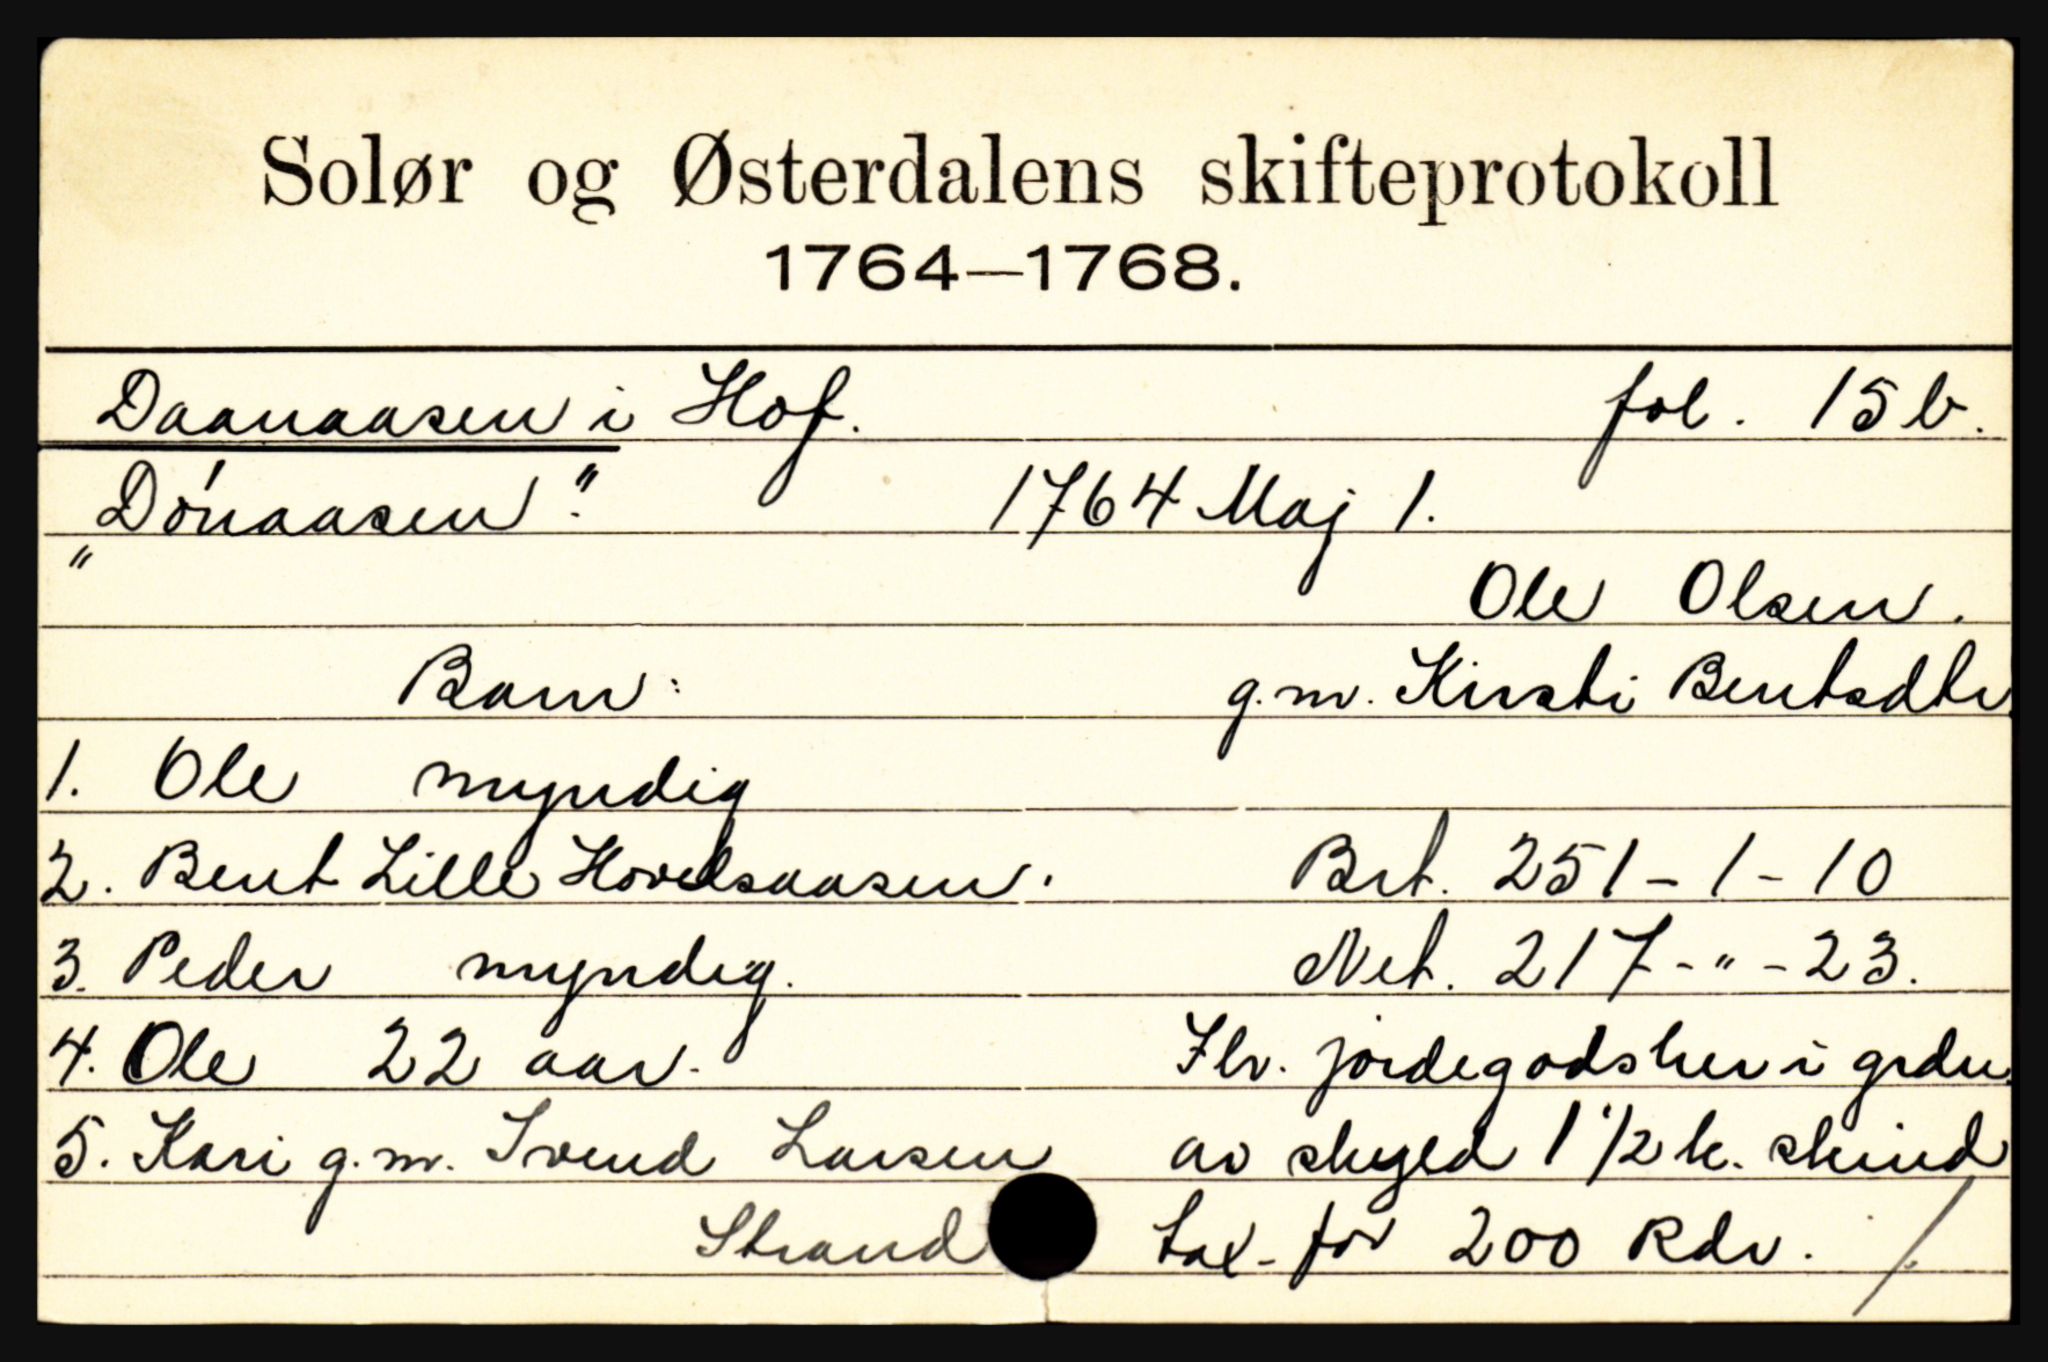 Solør og Østerdalens skifteprotokoll
1764—1768.
Daanaasen i Hof. fol. 15 b.
"Dónaasen". 1764 Maj 1.
"
Ole Olsen.
Barn: g.m. Kirsti Bentsdtr.
1. Ole myndig
2. Bent Lille Hovelsaasen. Brt. 251-1-10
3. Peder myndig. Net. 217-"-23.
4. Ole 22 aar. Flr. jordegodsher i grdn.
5. Kari g.m. Svend Larsen av skyld 1 1/2 k. skind
Strand tax. for 200 Rdr. /.